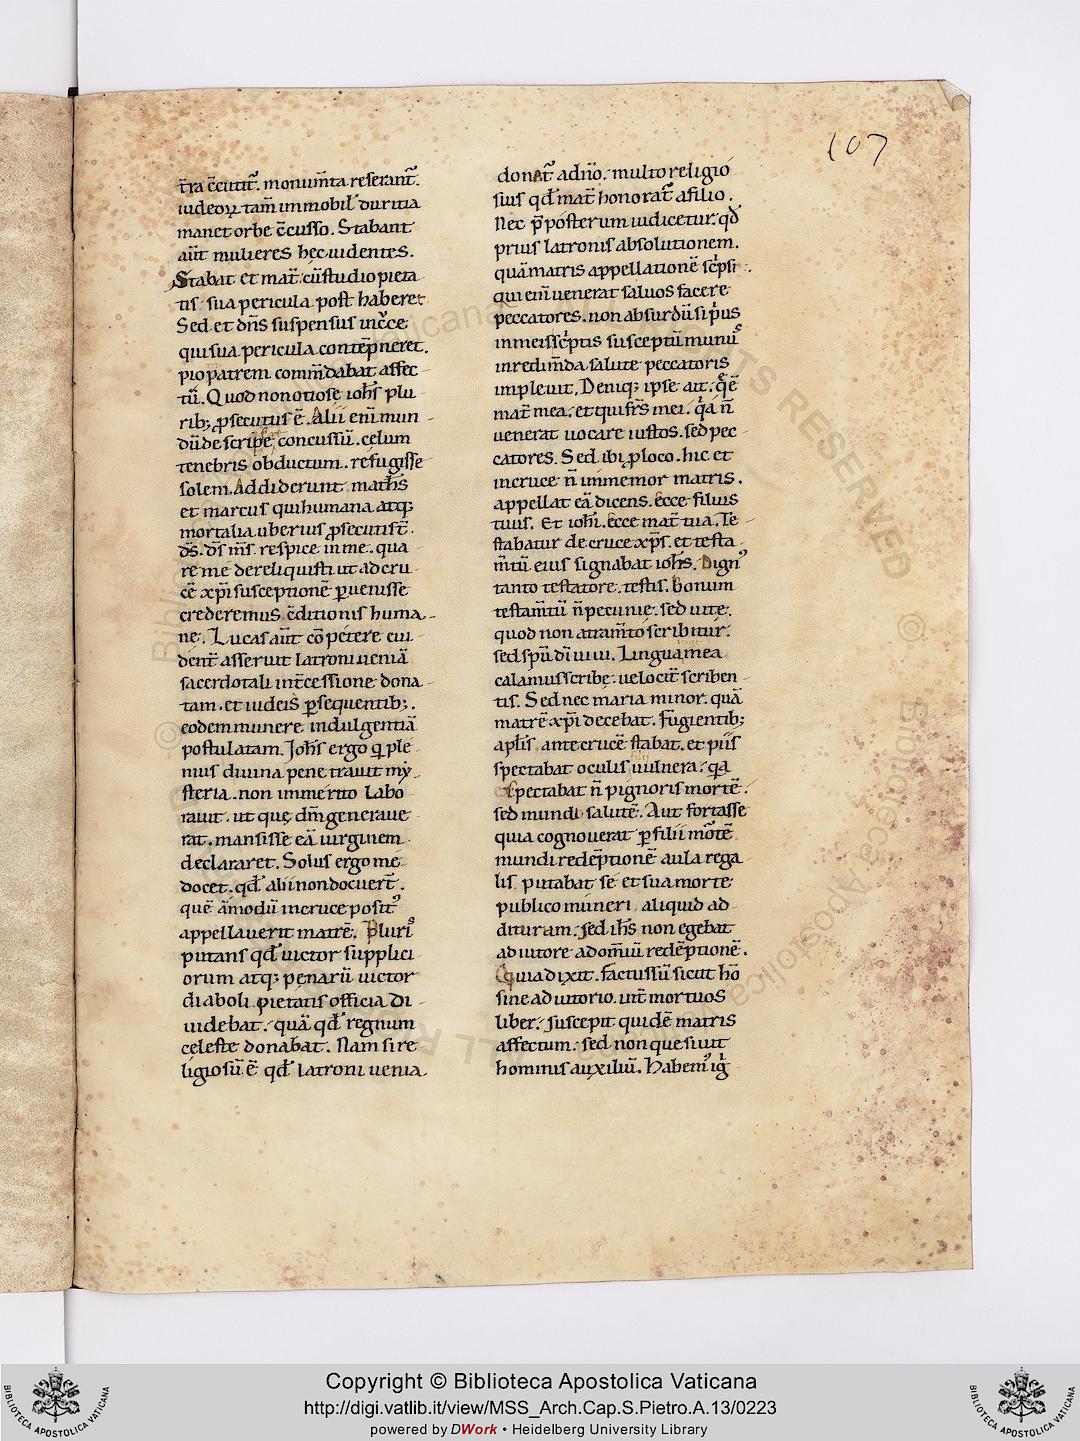 107
t̄ra c̄cutit᷑. monum̄ta reserant᷑.
iudeoꝝ tam̄ immobil' duritia
manet orbe c̄cusso. Stabant
aūt mulieres hec uidentes.
Stabat et mat̄ cū studio pieta
tis sua pericula post haberet
Sed et dn̄s suspensus incͬce
qui sua pericula contēpneret.
pio patrem com̄dabat affec
tū. Quod non otiose ioh̄s plu
rib; ꝓsecutus ē. Alii eni᷑ mun
dū de scripe concussū. celum
tenebris obductum. refugisse
solem. Addiderunt math̄s
et marcus qui humana atq;
mortalia uberius ꝓsecuti st̄.
ds̄. ds̄ m̄s. respice in me. qua
re me dereliquisti ut ad cru
cē xp̄i susceptionē ꝑuenisse
crederemus c̄ditionis huma
ne. Lucas aūt cōpetere eui
dent̄ asseruit latroni ueniā
sacerdotali int̄cessione dona
tam. et iudeis ꝑsequentib;.
eodem munere indulgentiā
postulatam. Joh̄s ergo q̄ ple
nius diuina penetrauit my
steria. non immerito labo
rauit. ut que dm̄ generaue
rat. mansisse eā uirginem
declararet. Solus ergo me
docet. qd̄ alii non docuer̄t.
quē ām̄odū in cruce posit᷒
appellauerit matrē. Pluri᷒
putans qd̄ uictor supplici
orum atq; penarū uictor
diaboli pietatis officia di
uidebat. quā qd̄ regnum
celeste donabat. Nam si re
ligiosū ē qd̄ latroni uenia
donat᷑ a dn̄o. multo religio
sius qd̄ mat̄ honorat᷑ a filio.
Nec p̄posterum iudicetur. qd̄
prius latronis absolutionem.
quā matris appellationē sc͛psi.
qui eni᷑ uenerat saluos facere
peccatores. non absurdū si p͛us
in meis sc͛ptis susceptū mun᷒
in redim̄da salute peccatoris
impleuit. Deniq; ipse ait. q̄ ē
mat̄ mea. et qui fr̄s mei. q͛a n̄
uenerat uocare iustos. sed pec
catores. Sed ibi ꝓ loco. hic et
in cruce n̄ immemor matris.
appellat eā dicens. ecce filius
tuus. Et ioh̄i. ecce mat̄ tua. Te
stabatur de cruce xp̄s. et testa
m̄tū eius signabat ioh̄s. Dign᷒
tanto testatore testis. Bonum
testam̄tū n̄ pecunie. sed uite.
quod non atram̄to scribitur.
sed spū dī uiui. Lingua mea
calamus scribe. uelocit̄ scriben
tis. Sed nec maria minor quā
matrē xp̄i decebat. Fugientib;
apl̄is ante crucē stabat. et piis
spectabat oculis uulnera. q͛a
expectabat n̄ pignoris mortē.
sed mundi salutē. Aut fortasse
quia cognouerat ꝑ filii mo᷑tē
mundi redēptionē aula rega
lis putabat se et sua morte
publico muneri aliquid ad
dituram. sed ih̄s non egebat
adiutore ad om̄iū redēptionē.
Quia dixit. factus sū sicut hō
sine adiutorio. int̄ mortuos
liber. suscepit quidē matris
affectum. sed non quesiuit
hominis auxiliū. Habem᷒ ig͛
Copyright © Biblioteca Apostolica Vaticana
http://digi.vatlib.it/view/MSS_Arch.Cap.S.Pietro.A.13/0223
powered by DWork • Heidelberg University Library
BIBLIOTECA APOSTOLICA VATICANA
BIBLIOTECA APOSTOLICA VATICANA